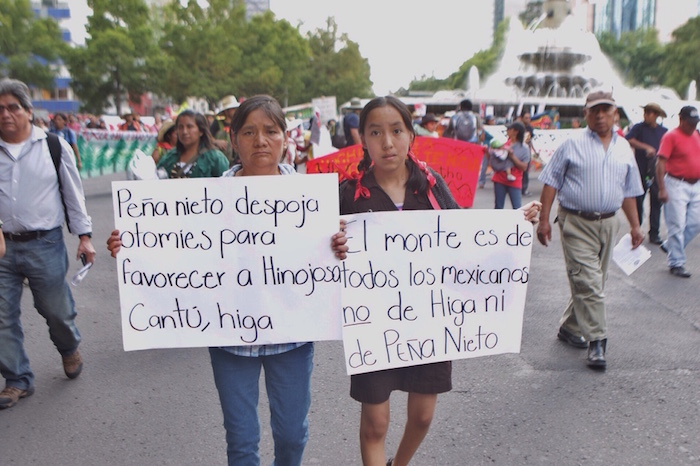 Peña nieto despoja
otomies para
favorecer a Hinojosa
Cantú, higa
El monte es de
todos los mexicanos
no de Higa ni
de PEÑA NIETO